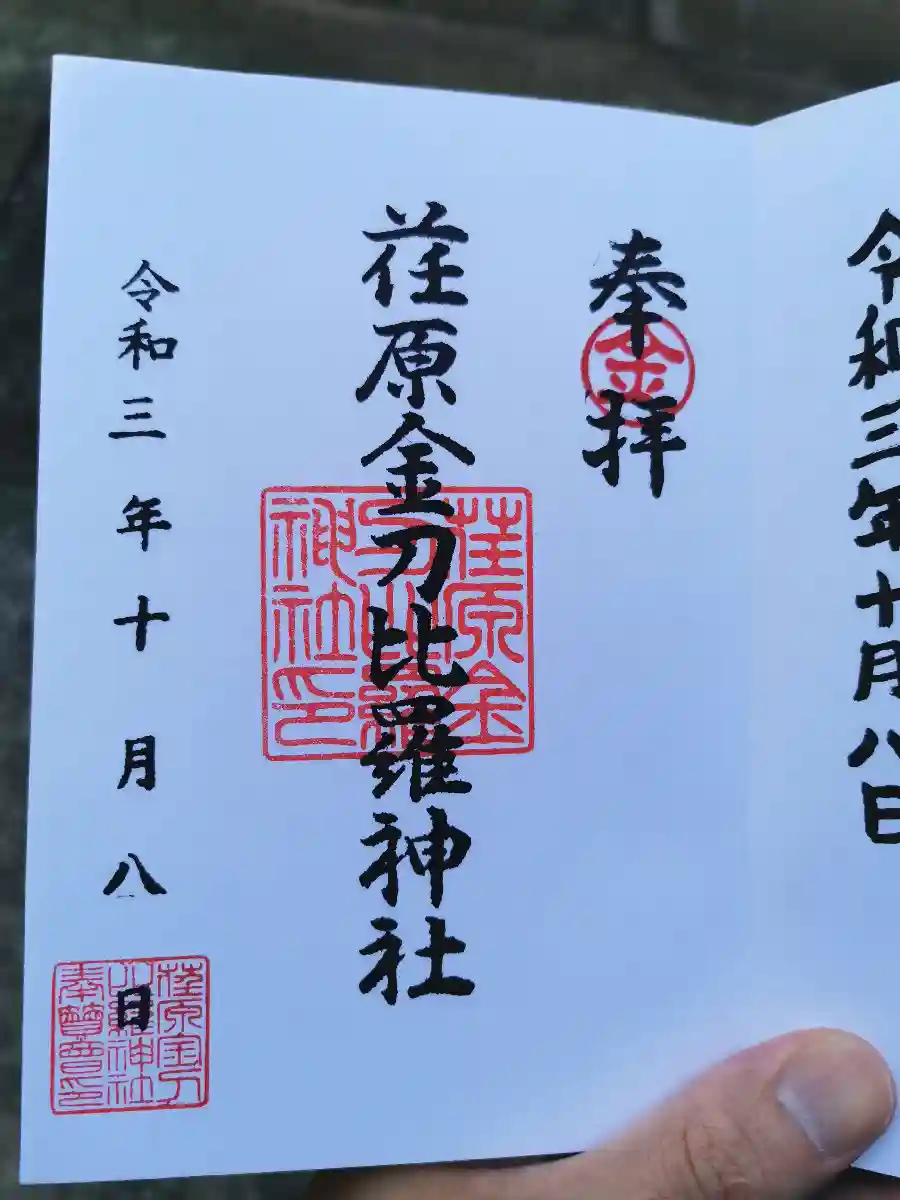 令和三年十月八日
奉拝
金
荏原金刀比羅神社
荏原金
刀比羅
神社印
令和三年十月八日
荏原金刀
比羅神社
奉賛會印